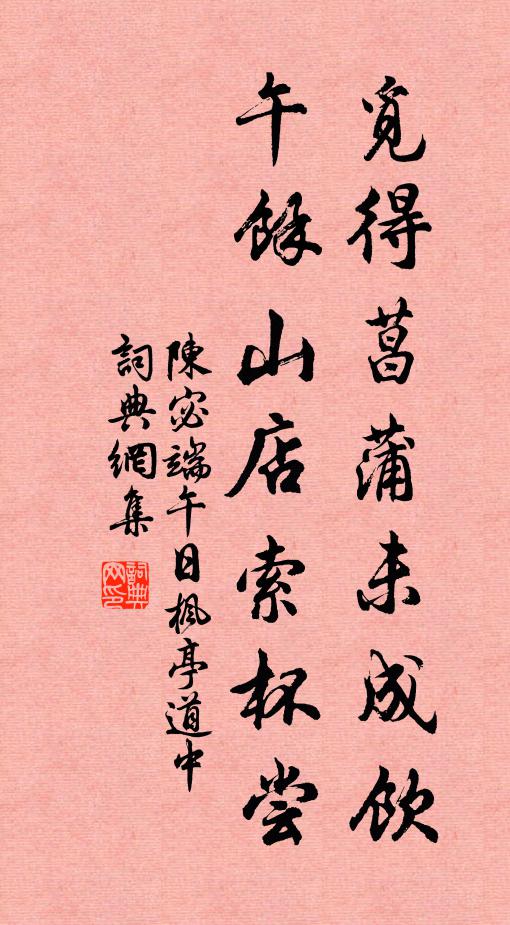 覓得菖蒲未成飲
午餘山店索杯嘗
陳宓端午日楓亭道中
詞典網集
詞典網印